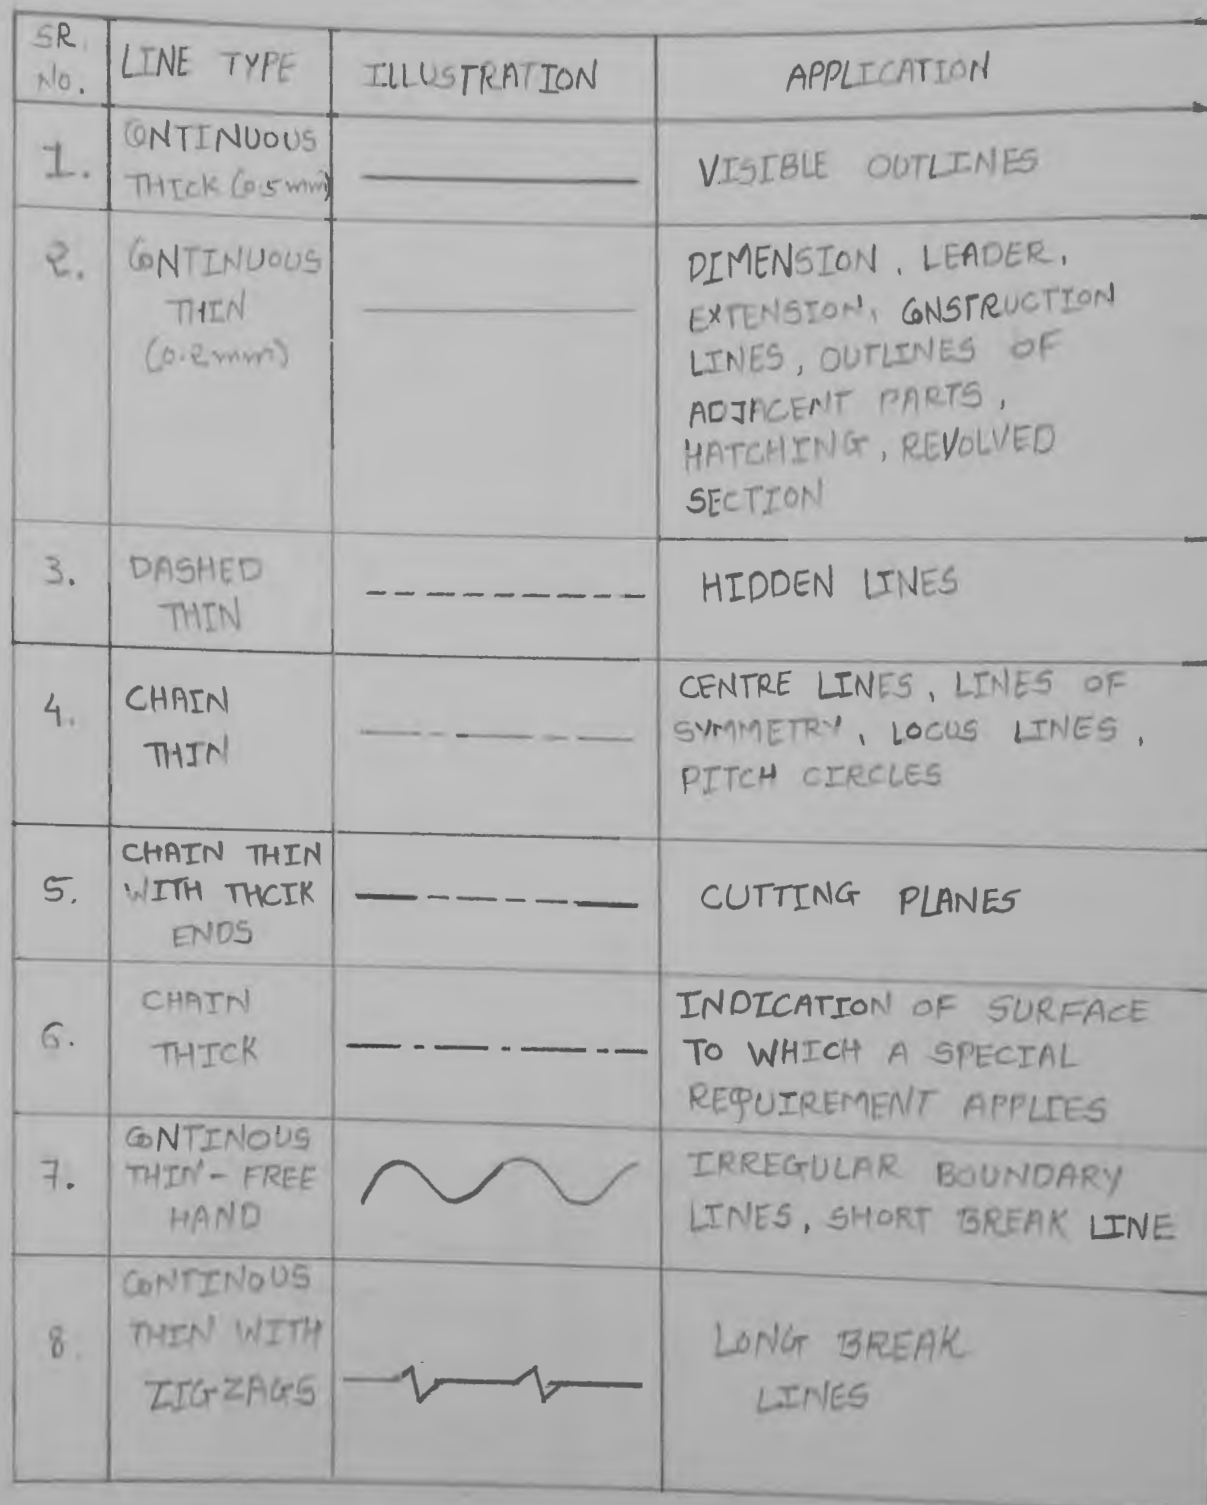 SR. No. LINE TYPE ILLUSTRATION APPLICATION
1. CONTINUOUS THICK (0.5mm) VISIBLE OUTLINES
2. CONTINUOUS THIN (0.2mm)
DIMENSION, LEADER,
EXTENSION, CONSTRUCTION
LINES, OUTLINES OF
ADJACENT PARTS,
HATCHING, REVOLVED
SECTION
3. DASHED THIN HIDDEN LINES
4. CHAIN THIN
CENTRE LINES, LINES OF
SYMMETRY, LOCUS LINES,
PITCH CIRCLES
5. CHAIN THIN WITH THCIK ENDS CUTTING PLANES
6. CHAIN THICK
INDICATION OF SURFACE
TO WHICH A SPECIAL
REQUIREMENT APPLIES
7. CONTINOUS THIN - FREE HAND
IRREGULAR BOUNDARY
LINES, SHORT BREAK LINE
8. CONTINOUS THIN WITH ZIGZAGS
LONG BREAK
LINES